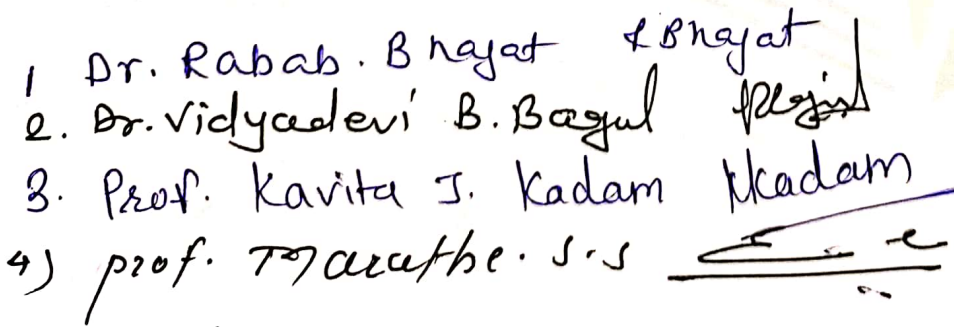 1 Dr. Rabab. Bhajat RBhajat
2. Dr. Vidyadevi B. Bagul
3. Prof. Kavita J. Kadam Kkadam
4) prof. Marathe. S.S